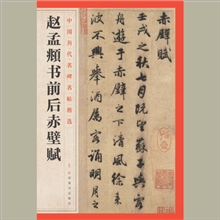 赤壁賦
壬戌之秋七月既望蘇子與客泛
舟遊于赤壁之下清風徐来水
波不興舉酒屬客誦明月之
中国历代名碑名帖精选
赵孟頫书前后赤壁赋